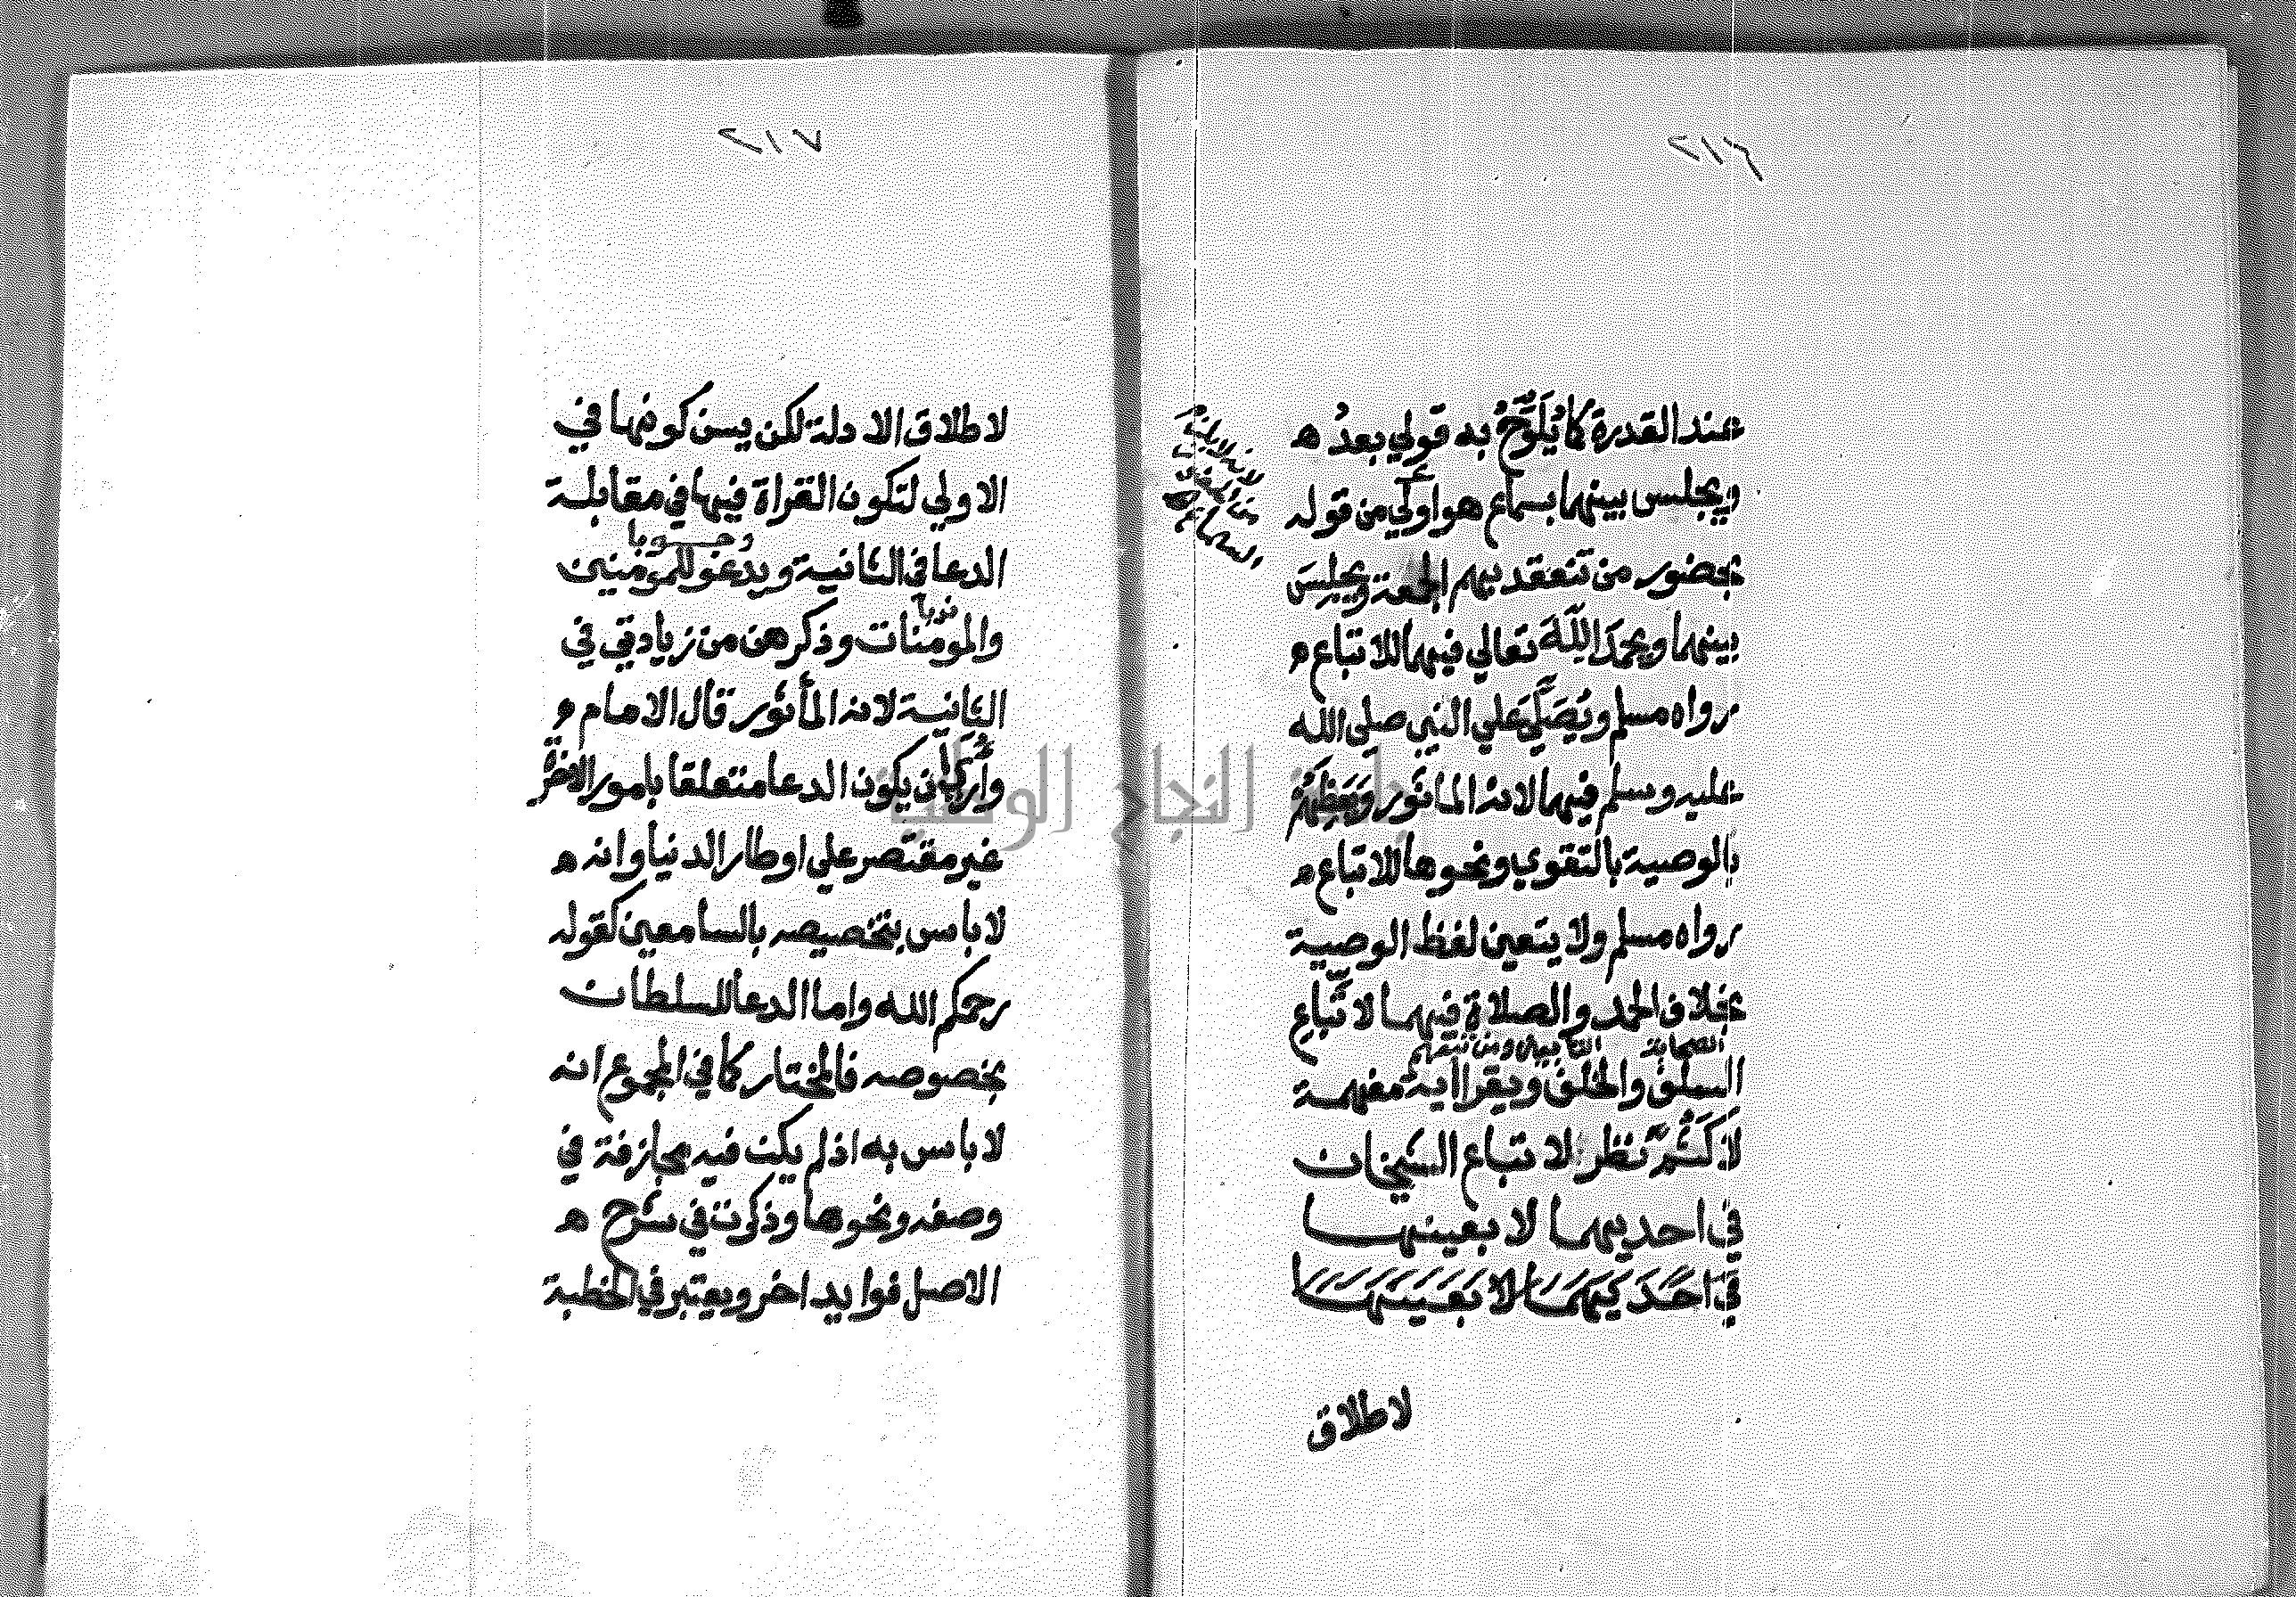 ٢١٦
عند القدرة كما يُلَوِّحُ به قولي بعدُ ه
ويجلس بينهما بسماع هو اولَي من قوله
بحضور من تنعقد بهم الجمعة ويجلسَ
بينهما ويحمدَ اللّهَ تعالي فيهما للاتباع م
رواه مسلم ويُصَلِّيَ علي النبي صلي الله
عليه وسلم فيهما لانه الماثور وَيَعِظَهُمْ
بالوصية بالتقوي ونحوها للاتباع م
رواه مسلم ولا يتعين لفظ الوصية
بخلاف الحمد والصلاة فيهما لاتّباع
الصحابة التابعين ومن تبعهم
السلف والخلف ويقرا اية مفهمة
لا كَثُمَّ نظر لاتباع الشيخان
في احديهما لا بعينهـــا
في احَدَيهمَا لا بعَينهَـــا
لاطلاق
لانه لا يلزم
من
السماع
٢١٧
لاطلاق الادلة لكن يسن كونها في
الاولي لتكون القراة فيها في مقابلة
وجـــوبا
الدعا في الثانية ويدعو للمومنين
ندبا
والمومنات وذكرهن من زيادتي في
الثانية لانه المأثور قال الامام م
وأري ان يكون الدعا متعلقا بامور الاخرة
غير مقتصر علي اوطار الدنيا وانه ه
لا باس بتخصيصه بالسامعين كقوله
رحمكم الله واما الدعا للسلطان
بخصوصه فالمختار كما في المجموع انه
لا باس به اذ لم يكن فيه مجازفة في
وصفه ونحوها وذكرت في شرح ه
الاصل فوايد اخر ويعتبر في الخطبة
جامعة النجاح الوطنية